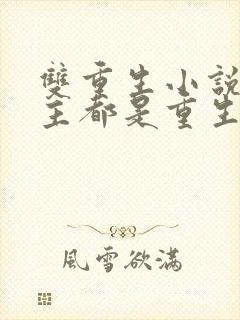 雙重生小說
主都是重生
風雪欲滿